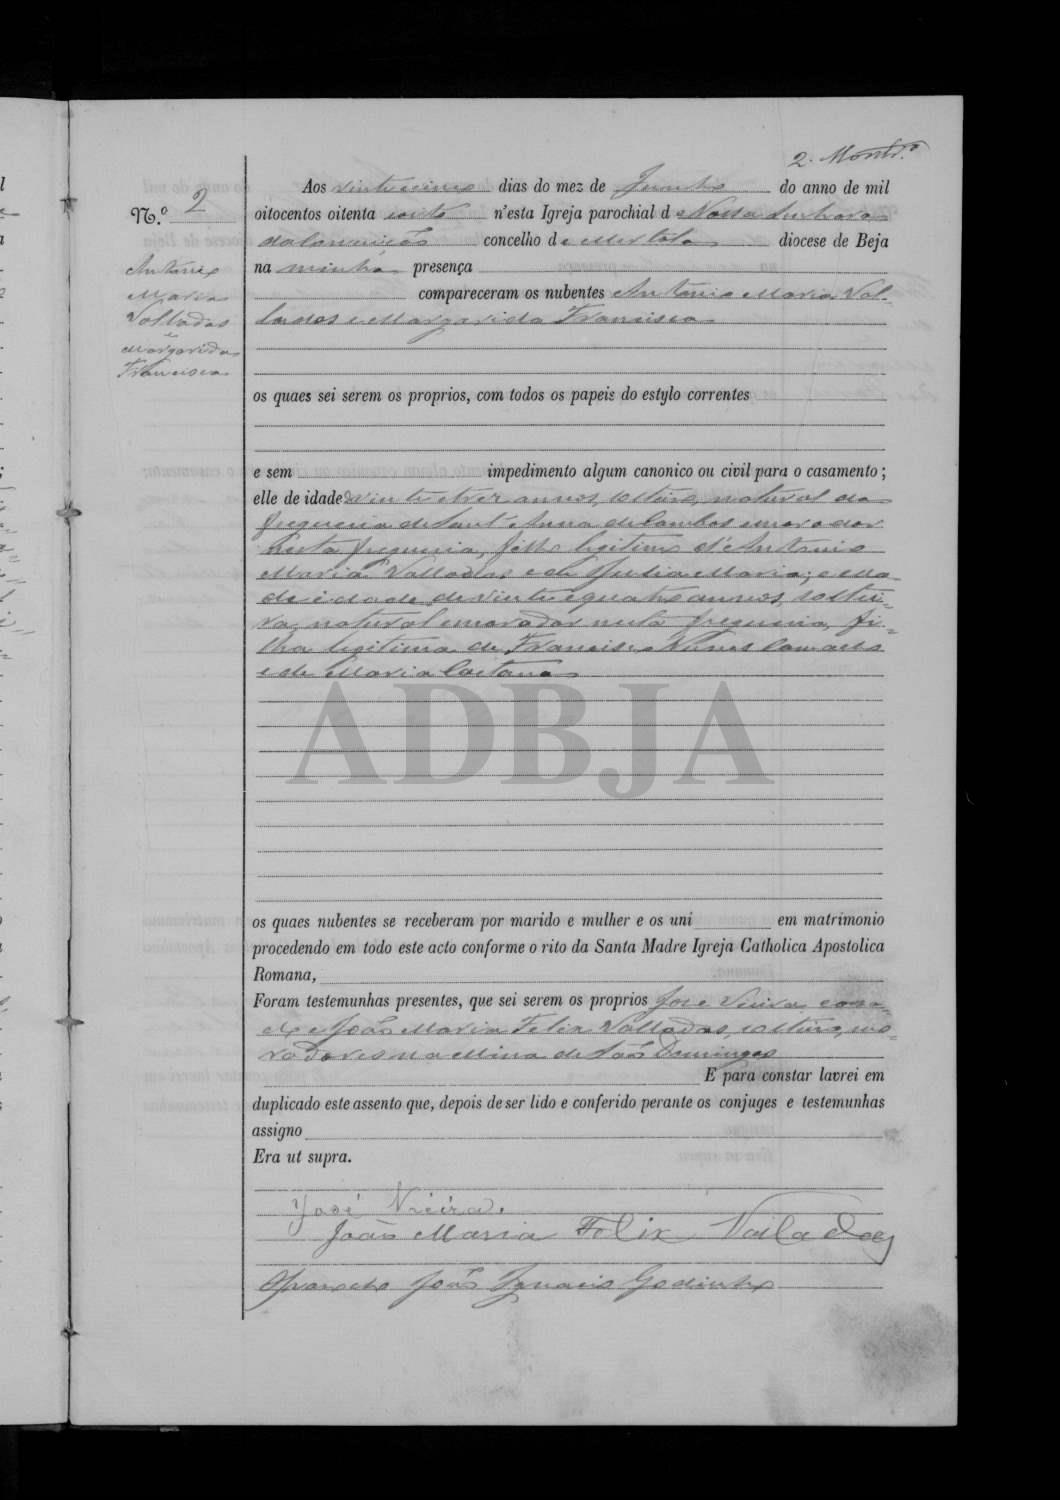 2.
Aos vinte cinco dias do mez de Junho do anno de mil
N.º 2
oitocentos oitenta e oito n'esta Igreja parochial de Nossa Senhora
da Conceição concelho de Mertola diocese de Beja
na minha presença
compareceram os nubentes Antonio Maria Val-
ladas e Margarida Francisca
Antonio
Maria
Valladas
e
Margarida
Francisca
os quaes sei serem os proprios, com todos os papeis do estylo correntes
e sem impedimento algum canonico ou civil para o casamento;
elle de idade de vinte e trez annos, solteiro, natural da
freguezia de Sant'Anna de Cambas e morador
nesta freguezia, filho legitimo d'Antonio
Maria Valladas e de Julia Maria; e ella
de idade de vinte e quatro annos, soltei-
ra, natural e morador nesta freguezia, fi-
lha legitima de Francisco Nunes Camacho
e de Maria Caetana
ADBJA
os quaes nubentes se receberam por marido e mulher e os uni em matrimonio
procedendo em todo este acto conforme o rito da Santa Madre Igreja Catholica Apostolica
Romana,
Foram testemunhas presentes, que sei serem os proprios José Vieira, casa-
do, e João Maria Felix Valladas, solteiro, mo-
radores na Mina de São Domingos
E para constar lavrei em
duplicado este assento que, depois de ser lido e conferido perante os conjuges e testemunhas
assigno
Era ut supra.
José Vieira.
João Maria Felix Valadas
O Parocho João Ignacio Godinho